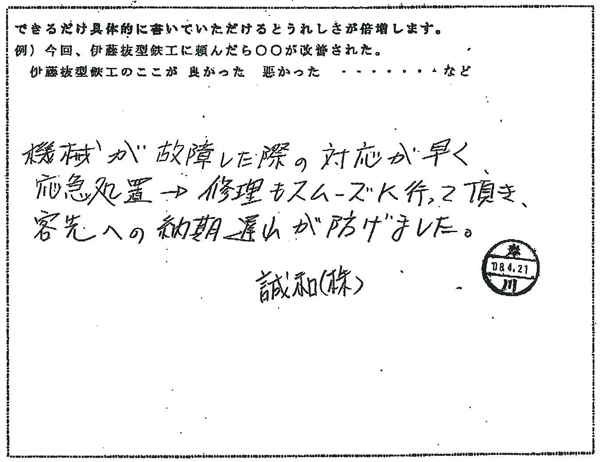 できるだけ具体的に書いていただけるとうれしさが倍増します。
例）今回、伊藤抜型鉄工に頼んだら〇〇が改善された。
伊藤抜型鉄工のここが 良かった 悪かった ・・・・・・・など
機械が故障した際の対応が早く
応急処置→修理もスムーズに行って頂き、
客先への納期遅れが防げました。
誠和(株)
岸
'08.4.21
川